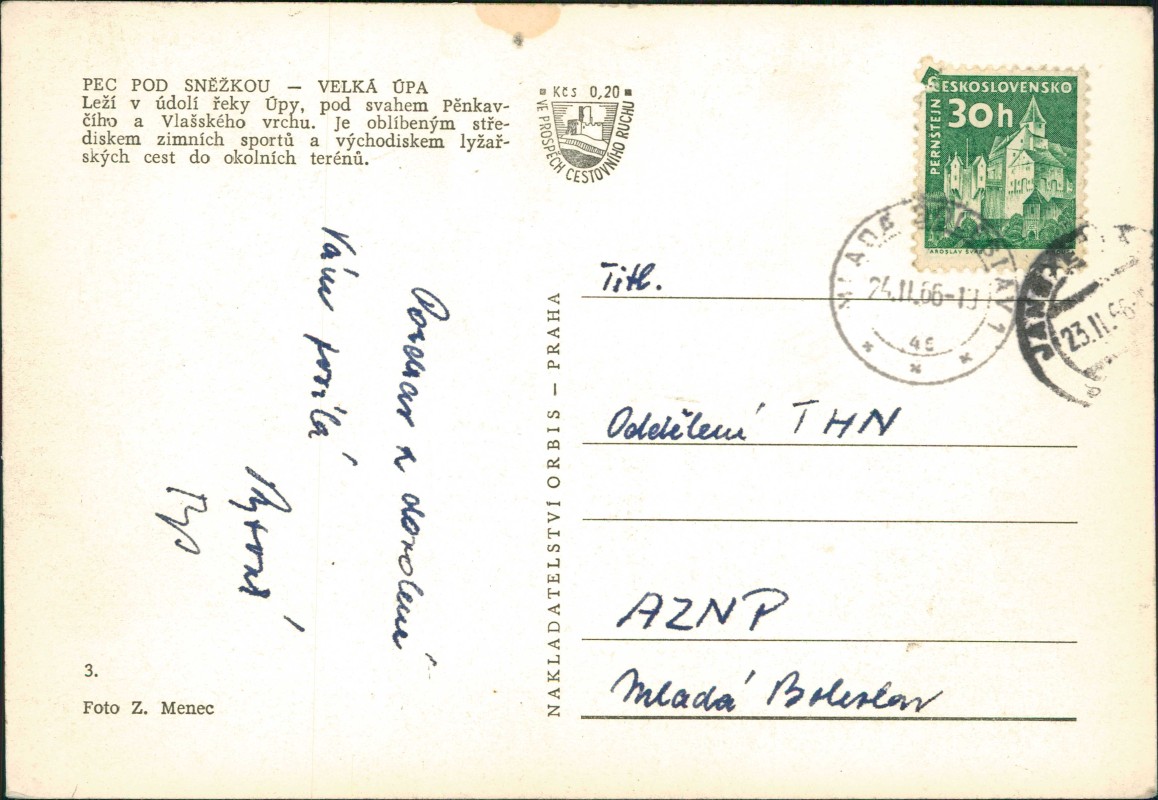 PEC POD SNĚŽKOU — VELKÁ ÚPA
Leží v údolí řeky Úpy, pod svahem Pěnkav-
čího a Vlašského vrchu. Je oblíbeným stře-
diskem zimních sportů a východiskem lyžař-
ských cest do okolních terénů.
Kčs 0,20
VE PROSPĚCH CESTOVNÍHO RUCHU
ČESKOSLOVENSKO
30h
PERNŠTEJN
JAROSLAV ŠVAB
MLADÁ BOLESLAV 1
24.II.66-13
4c
JANSKÉ
23.II.66
Pozdrav z dovolené
Vám posílá
Titl.
Oddělení THN
AZNP
Mladá Boleslav
NAKLADATELSTVÍ ORBIS — PRAHA
3.
Foto Z. Menec